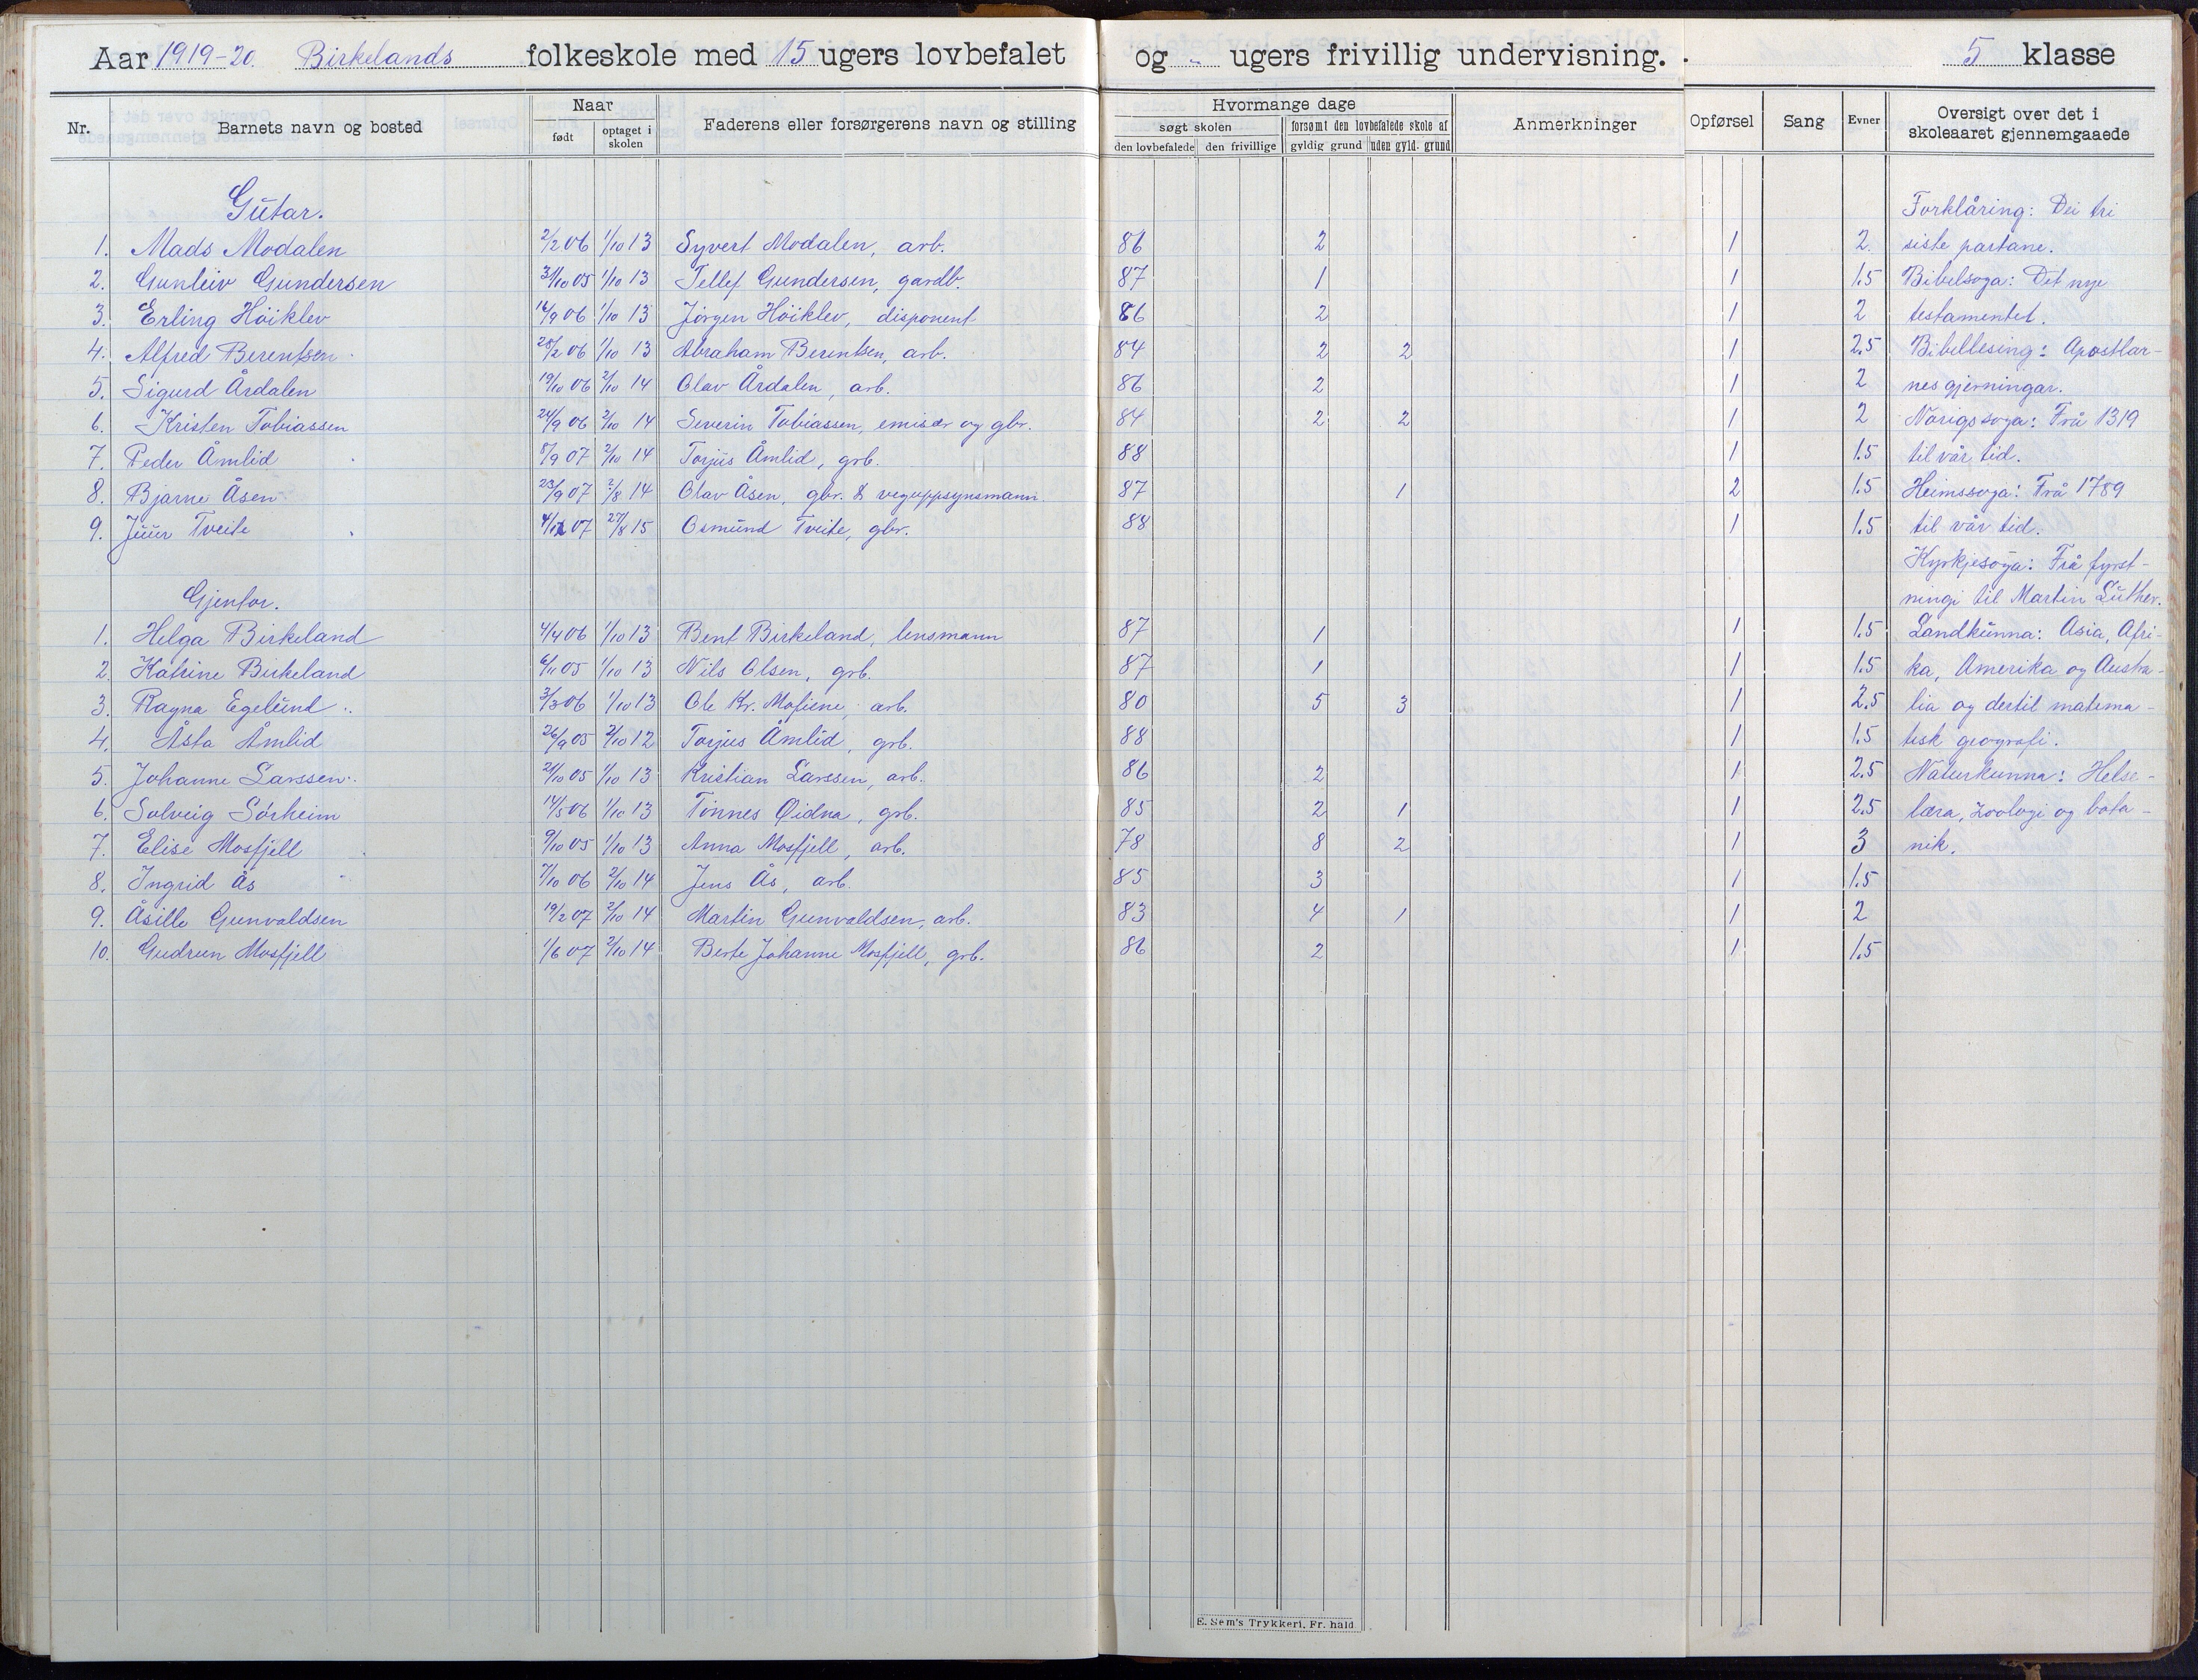 Aar 1919-20. Birkelands folkeskole med 15 ugers lovbefalet og - ugers frivillig undervisning. 5 klasse
Nr. Barnets navn og bosted Naar født optaget i skolen Faderens eller forsørgerens navn og stilling Hvormange dage søgt skolen den lovbefalede den frivillige forsømt den lovbefalede skole af gyldig grund uden gyld. grund Anmerkninger Opførsel Sang Evner Oversigt over det i skoleaaret gjennemgaaede
Gutar. Forklåring: Dei tri
1. Mads Modalen 2/2 06 1/10 13 Syvert Modalen, arb. 86 2 1 2 siste partane.
2. Gunleiv Gundersen 31/10 05 1/10 13 Tellef Gundersen, gardb. 87 1 1 1.5 Bibelsoga: Det nye
3. Erling Höiklev 14/9 06 1/10 13 Jörgen Höiklev, disponent 86 2 1 2 testamentet.
4. Alfred Berentsen 28/2 06 1/10 13 Abraham Berentsen, arb. 84 2 2 1 2.5 Bibellesing: Apostlar-
5. Sigurd Årdalen 19/10 06 2/10 14 Olav Årdalen, arb. 86 2 1 2 nesgjerningar.
6. Kristen Tobiassen 24/9 06 2/10 14 Severin Tobiassen, emisær og gbr. 84 2 2 1 2 Norigssoga: Frå 1319
7. Peder Åmlid 8/9 07 2/10 14 Torjus Åmlid, grb. 88 1 1.5 til vår tid.
8. Bjarne Åsen 23/9 07 2/8 14 Olav Åsen, gbr. & veguppsynsmann. 87 1 2 1.5 Heimssoga: Frå 1789
9. Juur Tveite 4/12 07 27/8 15 Osmund Tveite, gbr. 88 1 1.5 til vår tid.
Kyrkjesoga: Frå fyrst-
Gjentor. ningi til Martin Luther.
1. Helga Birkeland 4/4 06 1/10 13 Bent Birkeland, lensmann 87 1 1 1.5 Landkunna: Asia, Afri-
2. Katrine Birkeland 6/11 05 1/10 13 Nils Olsen, grb. 87 1 1 1.5 ka, Amerika og Austra-
3. Ragna Egelund 3/3 06 1/10 13 Ole Kr. Mofiene, arb. 80 5 3 1 2.5 lia og dertil matema-
4. Åsta Åmlid 26/9 05 2/10 12 Torjus Åmlid, grb. 88 1 1.5 tisk geografi.
5. Johanne Larssen 21/10 05 1/10 13 Kristian Larssen, arb. 86 2 1 2.5 Naturkunna: Helse-
6. Solveig Sörheim 14/5 06 1/10 13 Tönnes Øidna, grb. 85 2 1 1 2.5 læra, zoologi og bota-
7. Elise Mosfjell 9/10 05 1/10 13 Anna Mosfjell, arb. 78 8 2 1 3 nik.
8. Ingrid Ås 7/10 06 2/10 14 Jens Ås, arb. 85 3 1 1.5
9. Åsille Gunvaldsen 19/2 07 2/10 14 Martin Gunvaldsen, arb. 83 4 1 1 2
10. Gudrun Mosfjell 1/6 07 2/10 14 Berte Johanne Mosfjell, grb. 86 2 1 1.5
E. Sem's Trykkeri, Fr. hald